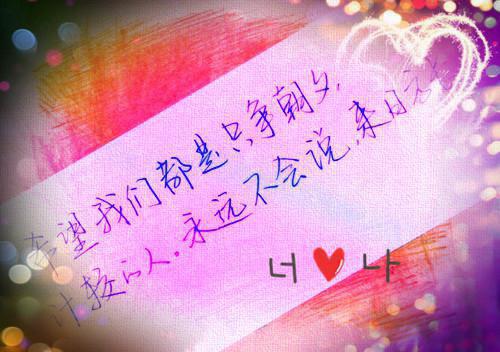 希望我们都是只争朝夕,
计较的人。永远不会说,来日方长
너 ❤ 나